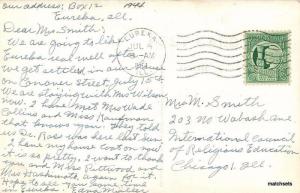 our address: Box 12 1944
Eureka, Ill.
Dear Mrs. Smith:
We are going to like
Eureka real well after
we get settled in our house
on Conover Street July 15th
We are staying with Mrs Wilson
now. I have met Mrs Wade
Collins and Miss Kaufman
who knows you. I told
us Dr. Ross was dear
I have my house coat on now
it is so pretty. I want to
thank you and Mrs
Miss Hashimoto again for it.
Hope to see you some time
EUREKA
JUL
AM
ILL.
Mrs. M. Smith
203 No Wabash Ave
International Council
of Religious Education
Chicago, Ill.
matchsets